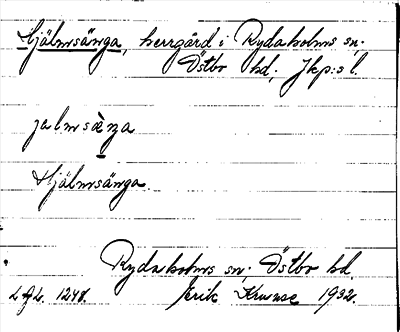 Hjälmsänga, herrgård i Rydaholms sn;
Östbo hd, Jkp:s l.
jalmsὲŋa
Hjälmsänga.
Rydaholms sn; Östbo hd.
L.f.L. 1248. Erik Kruuse 1932.